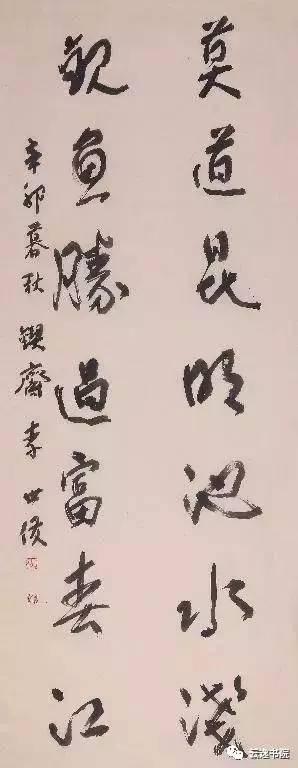 莫道昆明池水淺
觀魚勝過富春江
辛卯暮秋 鍥齋 李世俊
云逸书院